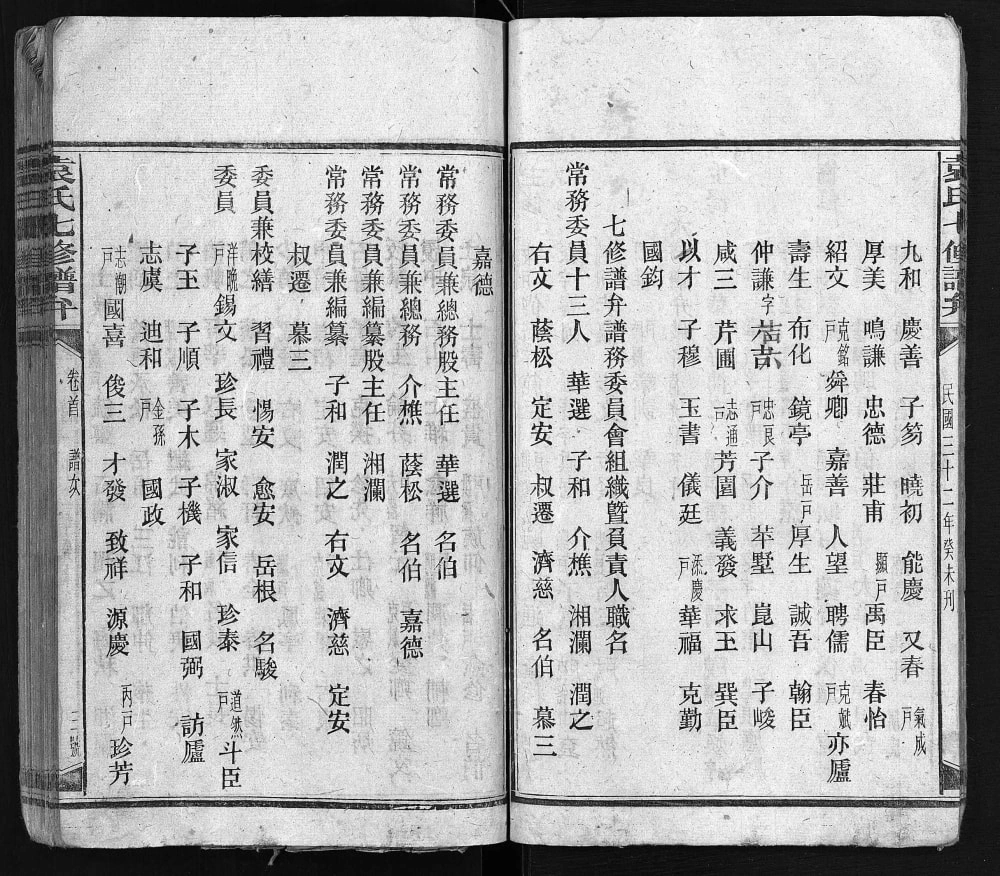 袁氏七修譜弁
民國三十二年癸未刊
九和 慶善 子笏 曉初 能慶 又春 氣成戶
厚美 鳴謙 忠德 莊甫 顯戶禹臣 春怡
紹文 克銘戶舜卿 嘉善 人望 聘儒 克戶亦廬
壽生 布化 鏡亭 岳一戶厚生 誠吾 翰臣
仲謙字 六吉 忠良戶子介 苹墅 崑山 子峻
咸三 芹圃 志通戶芳園 義發 求王 巽臣
以才 子穆 玉書 儀廷 添慶戶華福 克勤
國鈞
七修譜弁譜務委員會組織曁負責人職名
常務委員十三人 華選 子和 介樵 湘瀾 潤之
右文 蔭松 定安 叔遷 濟慈 名伯 慕三
嘉德
常務委員兼總務股主任 華選 名伯
常務委員兼總務 介樵 蔭松 名伯 嘉德
常務委員兼編纂股主任 湘瀾
常務委員兼編纂 子和 潤之 右文 濟慈 定安
叔遷 慕三
委員兼校繕 習禮 惕安 愈安 岳根 名駿
委員 祥戶錫文 珍長 家淑 家信 珍泰 道然戶斗臣
子玉 子順 子木 子機 子和 國弼 訪廬
志虞 迪和 金孫戶 國政
志潮戶國喜 俊三 才發 致祥 源慶 丙一戶珍芳
袁氏七修譜弁
卷首 譜友
三號